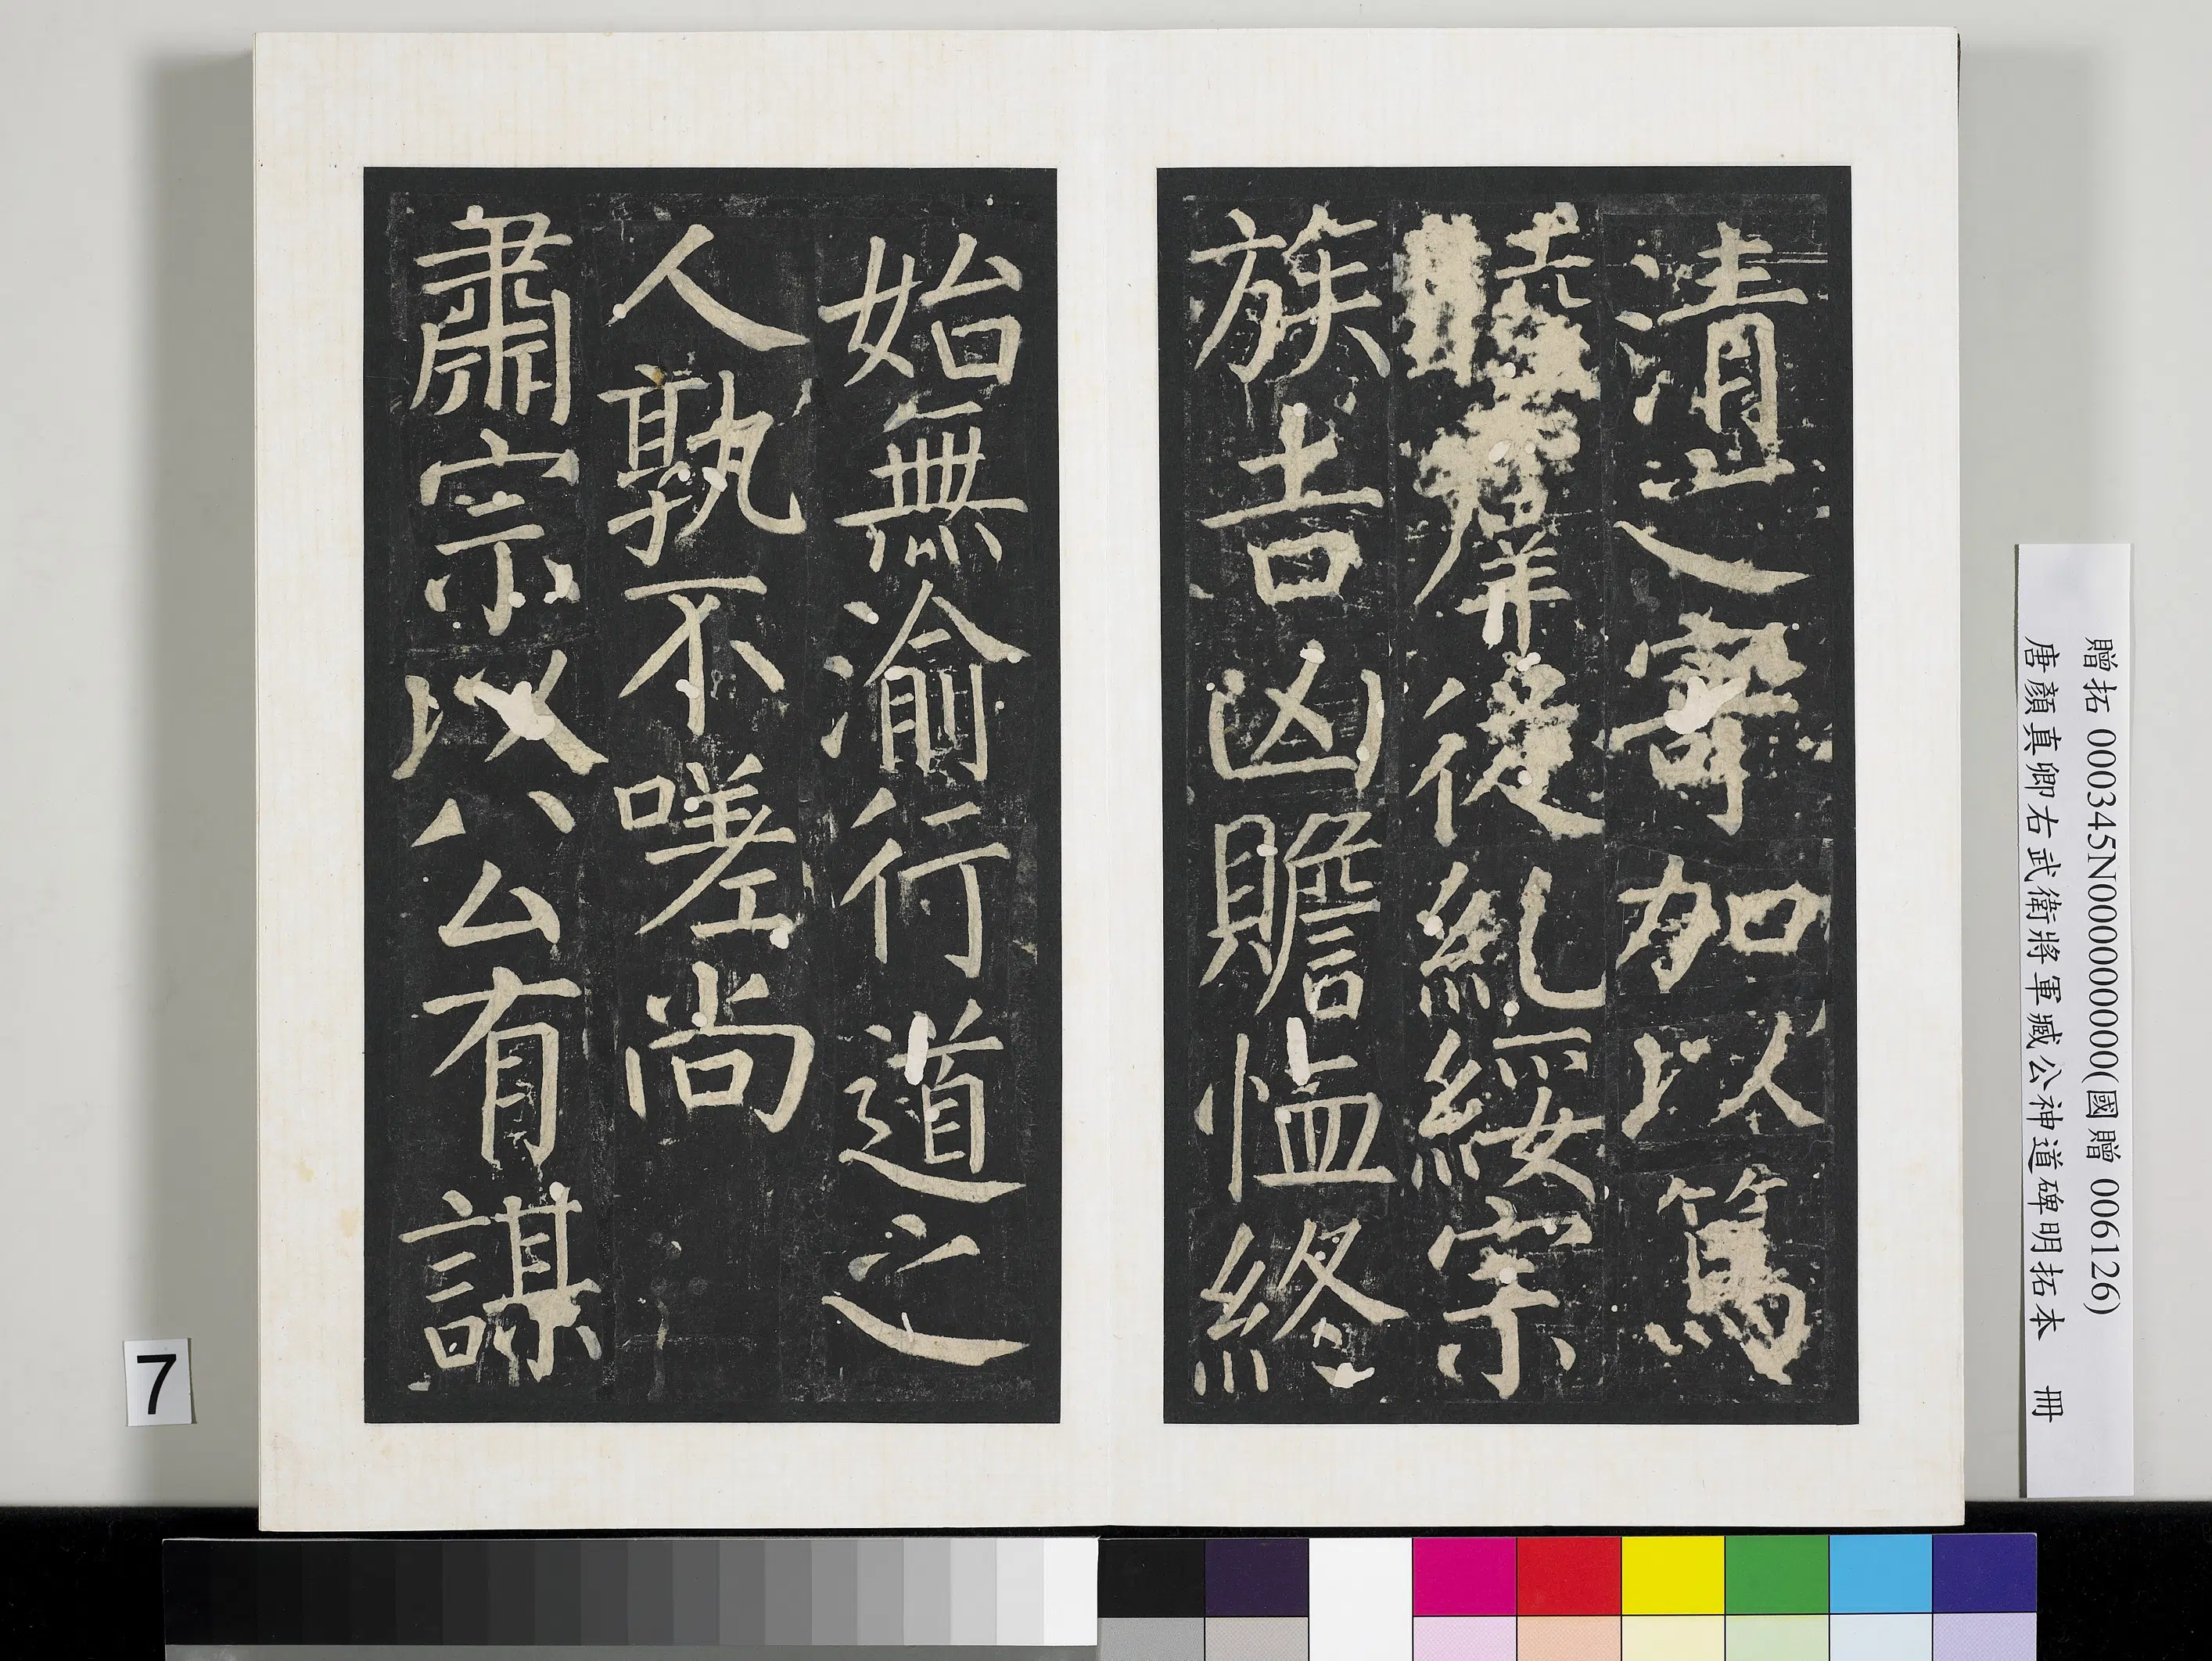 清之寄加以篤
睦羣從糺綏宗
族吉凶贍恤終
始無渝行道之
人孰不嗟尚
肅宗以公有謀
7
贈拓 000345N000000000(國贈 006126)
唐顏真卿右武衛將軍臧公神道碑明拓本 冊